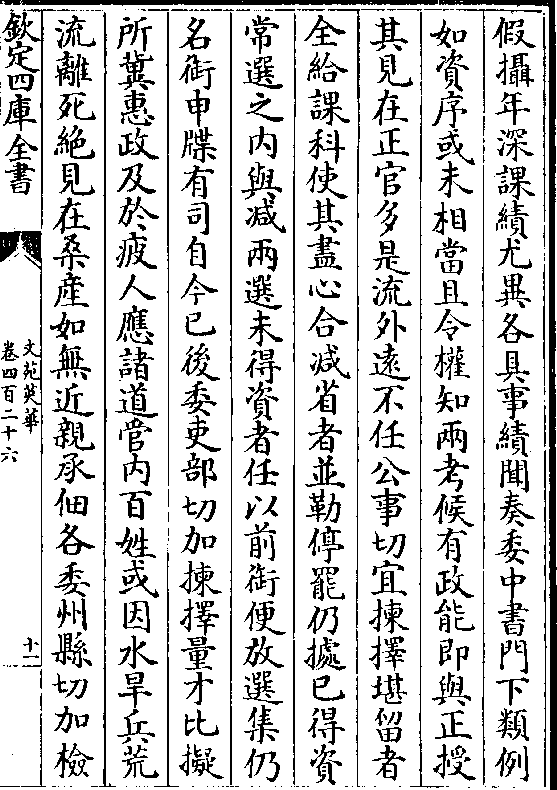 假攝年深課績尤異各具事績聞奏委中書門下類例
如資序或未相當且令權知兩考候有政能即與正授
其見在正官多是流外遠不任公事切宜揀擇堪留者
全給課科使其盡心合減省者並勒停罷仍據已得資
常選之内與減兩選未得資者任以前銜便放選集仍
名銜申牒有司自今已後委吏部切加揀擇量才比擬
所冀惠政及於疲人應諸道管内百姓或因水旱兵荒
流離死絶見在桑産如無近親承佃各委州縣切加檢
欽定四庫全書
文苑英華
卷四百二十六
十二